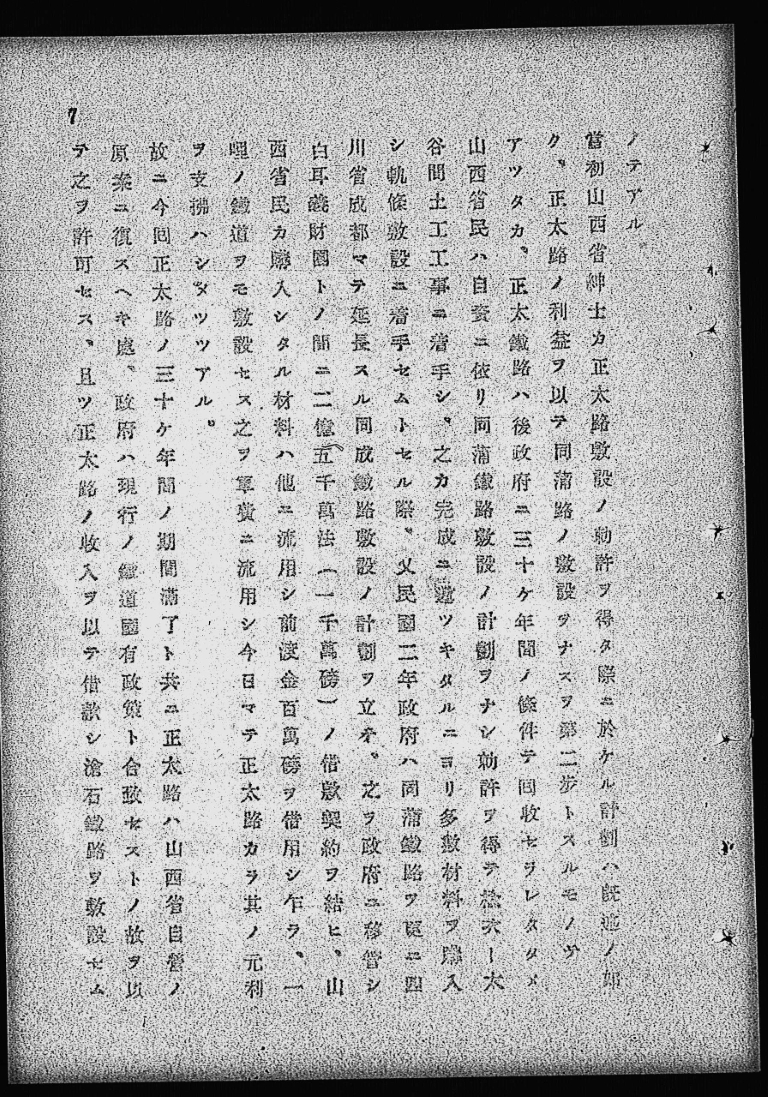 ノテアル。
當初山西省紳士カ正太路敷設ノ勅許ヲ得タ際ニ於ケル計劃ハ既述ノ如
ク、正太路ノ利益ヲ以テ同蒲路ノ敷設ヲナスヲ第二步トスルモノデ
アツタカ、正太鐵路ハ後政府ニ三十ケ年間ノ條件テ回收セラレタタメ
山西省民ハ自資ニ依リ同蒲鐵路敷設ノ計劃ヲナシ勅許ヲ得テ楡次ー太
谷間土工工事ニ着手シ、之カ完成ニ近ツキタルニヨリ多數材料ヲ購入
シ軌條敷設ニ着手セムトセル際、父民國二年政府ハ同蒲鐵路ヲ更ニ四
川省成都マテ延長スル同成鐵路敷設ノ計劃ヲ立テ、之ヲ政府ニ移管シ
白耳義財團トノ間ニ二億五千萬法(一千萬磅)ノ借款契約ヲ結ヒ、山
西省民カ購入シタル材料ハ他ニ流用シ前渡金百萬磅ヲ借用シ乍ラ、一
哩ノ鐵道ヲモ敷設セス之ヲ軍費ニ流用シ今日マテ正太路カラ其ノ元利
ヲ支拂ハシメツツアル。
故ニ今回正太路ノ三十ケ年間ノ期間滿了ト共ニ正太路ハ山西省自營ノ
原案ニ復スヘキ處、政府ハ現行ノ鐵道國有政策ト合致セストノ故ヲ以
テ之ヲ許可セス、且ツ正太路ノ收入ヲ以テ借款シ滄石鐵路ヲ敷設セム
7